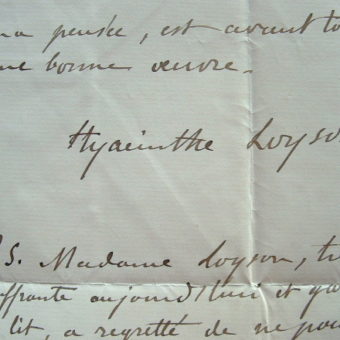 ma pensée, est avant to
une bonne œuvre.
Hyacinthe Loyso
P.S. Madame Loyson, tr
ffrante aujourd'hui et ga
lit, a regretté de ne pou